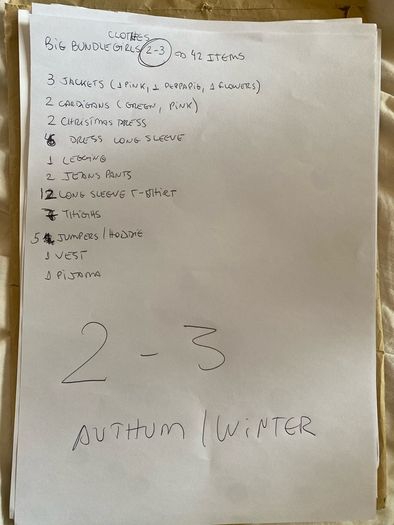 CLOTHES
BIG BUNDLE GIRLS 2-3 42 ITEMS
3 JACKETS (1 PINK, 1 PEPPAPIG, 1 FLOWERS)
2 CARDIGANS (GREEN, PINK)
2 CHRISIMAS DRESS
6 DRESS LONG SLEEVE
1 LEGGING
2 JEANS PANTS
12 LONG SLEEVE T-SHIRT
7 THIGHS
5 JUMPERS/HODDIE
1 VEST
1 PIJAMA
2-3
AUTHUM/WINTER